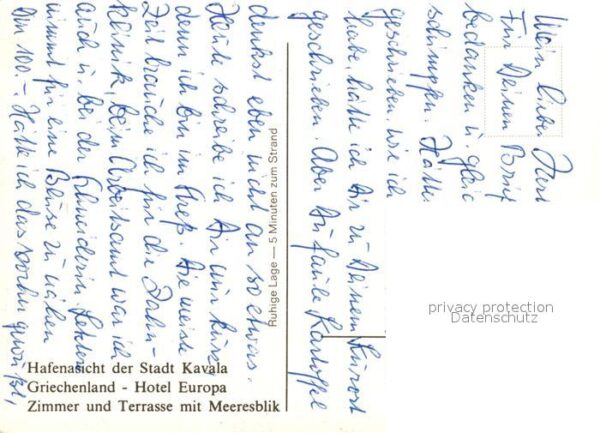 Mein lieber
Für Deinen Brief
bedanken u. gleic
schimpfen. Hätte
geschrieben wie ich
habe, hätte ich Dir zu Deinem Kurort
geschrieben. Aber Du faule Kartoffel
denkst eben nicht an so etwas.
Heute schreibe ich Dir nur kurz
denn ich bin im Streß. Die meiste
Zeit brauche ich für die Zahn-
klinik, beim Arbeitsamt war ich
auch u. bei der Schneiderin. Letztere
nimmt für eine Bluse zu nähen
DM 100.-. Hätte ich das vorher gewußt,
Ruhige Lage — 5 Minuten zum Strand
Hafenasicht der Stadt Kavala
Griechenland - Hotel Europa
Zimmer und Terrasse mit Meeresblik
privacy protection
Datenschutz